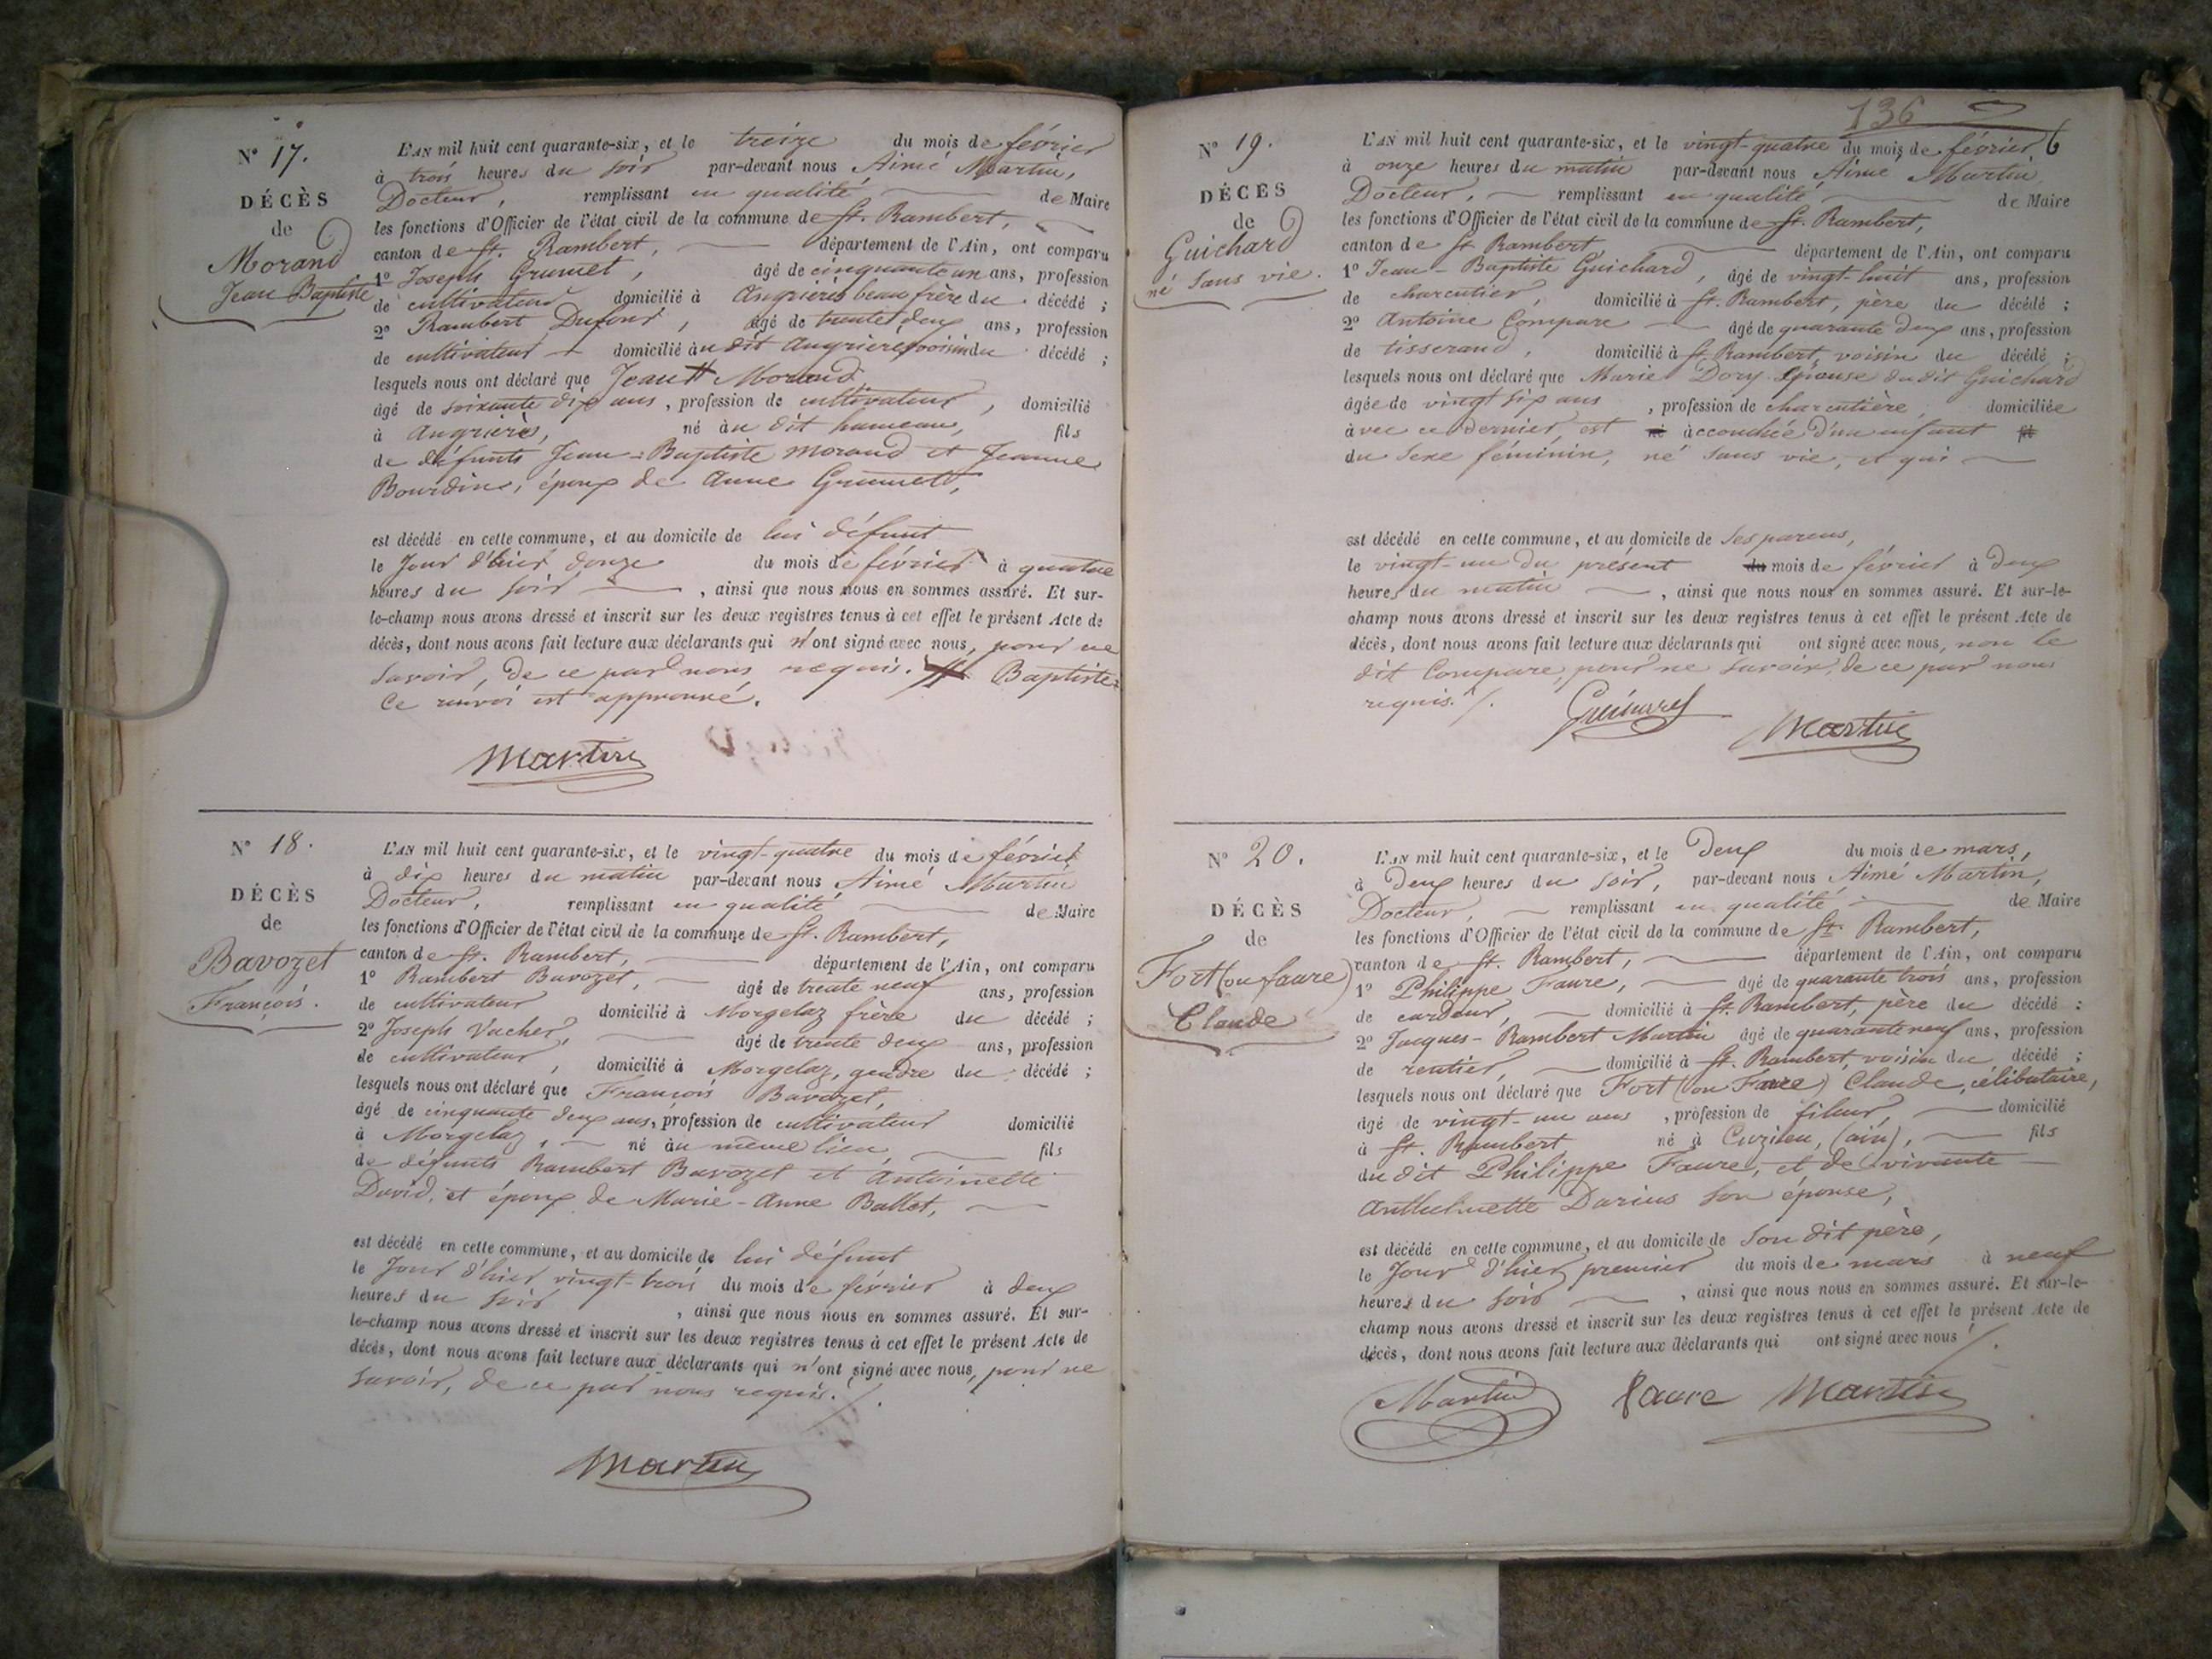 N° 17.
DÉCÈS
de
Morand
Jean Baptiste
L'AN mil huit cent quarante-six, et le treize du mois de février
à trois heures du soir par-devant nous Aimé Martin,
Docteur, remplissant en qualité de Maire
les fonctions d'Officier de l'état civil de la commune de St. Rambert,
canton de St. Rambert, département de l'Ain, ont comparu
1° Joseph Grumet, âgé de cinquante un ans, profession
de cultivateur domicilié à Angrières beau frère du décédé ;
2° Rambert Dufour, âgé de trente deux ans, profession
de cultivateur domicilié au dit Angrières voisin du décédé ;
lesquels nous ont déclaré que Jean # Morand
âgé de soixante dix ans, profession de cultivateur, domicilié
à Angrières, né au dit hameau, fils
de défunts Jean-Baptiste Morand et Jeanne
Bourdin, époux de Anne Grumet,
est décédé en cette commune, et au domicile de lui défunt
le jour d'hier douze du mois de février à quatre
heures du soir, ainsi que nous nous en sommes assuré. Et sur-
le-champ nous avons dressé et inscrit sur les deux registres tenus à cet effet le présent Acte de
décès, dont nous avons fait lecture aux déclarants qui n'ont signé avec nous, pour ne
savoir, de ce par nous requis. # Baptiste
Ce renvoi est approuvé.
Martin
N° 18.
DÉCÈS
de
Bavozet
François.
L'AN mil huit cent quarante-six, et le vingt-quatre du mois de février
à dix heures du matin par-devant nous Aimé Martin
Docteur, remplissant en qualité de Maire
les fonctions d'Officier de l'état civil de la commune de St. Rambert,
canton de St. Rambert, département de l'Ain, ont comparu
1° Rambert Bavozet, âgé de trente neuf ans, profession
de cultivateur domicilié à Morgelaz frère du décédé ;
2° Joseph Vacher, âgé de trente deux ans, profession
de cultivateur, domicilié à Morgelaz, gendre du décédé ;
lesquels nous ont déclaré que François Bavozet,
âgé de cinquante deux ans, profession de cultivateur domicilié
à Morgelaz, né au même lieu, fils
de défunts Rambert Bavozet et Antoinette
David, et époux de Marie-Anne Ballet,
est décédé en cette commune, et au domicile de lui défunt
le jour d'hier vingt-trois du mois de février à deux
heures du soir, ainsi que nous nous en sommes assuré. Et sur-
le-champ nous avons dressé et inscrit sur les deux registres tenus à cet effet le présent Acte de
décès, dont nous avons fait lecture aux déclarants qui n'ont signé avec nous, pour ne
savoir, de ce par nous requis.
Martin
136
6
N° 19.
DÉCÈS
de
Guichard
né sans vie.
L'AN mil huit cent quarante-six, et le vingt-quatre du mois de février
à onze heures du matin par-devant nous Aimé Martin
Docteur, remplissant en qualité de Maire
les fonctions d'Officier de l'état civil de la commune de St. Rambert,
canton de St Rambert département de l'Ain, ont comparu
1° Jean-Baptiste Guichard, âgé de vingt-huit ans, profession
de charcutier, domicilié à St. Rambert, père du décédé ;
2° Antoine Compare âgé de quarante deux ans, profession
de tisserand, domicilié à St Rambert, voisin du décédé ;
lesquels nous ont déclaré que Marie Dory épouse du dit Guichard
âgée de vingt six ans, profession de charcutière, domiciliée
avec ce dernier, est né accouchée d'un enfant fils
du sexe féminin, né sans vie, et qui
est décédé en cette commune, et au domicile de ses parens,
le vingt-un du présent du mois de février à deux
heures du matin, ainsi que nous nous en sommes assuré. Et sur-le-
champ nous avons dressé et inscrit sur les deux registres tenus à cet effet le présent Acte de
décès, dont nous avons fait lecture aux déclarants qui ont signé avec nous, non le
dit Compare, pour ne savoir, de ce par nous
requis.
Martin
N° 20.
DÉCÈS
de
Fort (ou faure)
Claude
L'AN mil huit cent quarante-six, et le deux du mois de mars,
à deux heures du soir, par-devant nous Aimé Martin,
Docteur, remplissant en qualité de Maire
les fonctions d'Officier de l'état civil de la commune de St. Rambert,
canton de St. Rambert, département de l'Ain, ont comparu
1° Philippe Faure, âgé de quarante trois ans, profession
de cardeur, domicilié à St. Rambert, père du décédé ;
2° Jacques-Rambert Martin âgé de quarante neuf ans, profession
de rentier, domicilié à St. Rambert, voisin du décédé ;
lesquels nous ont déclaré que Fort (ou Faure) Claude, célibataire,
âgé de vingt-un ans, profession de fileur, domicilié
à St. Rambert né à Cuzieu, (ain), fils
du dit Philippe Faure, et de vivante
Anthelmette Darius son épouse,
est décédé en cette commune, et au domicile de son dit père,
le jour d'hier premier du mois de mars à neuf
heures du soir, ainsi que nous nous en sommes assuré. Et sur-le-
champ nous avons dressé et inscrit sur les deux registres tenus à cet effet le présent Acte de
décès, dont nous avons fait lecture aux déclarants qui ont signé avec nous
Martin faure Martin